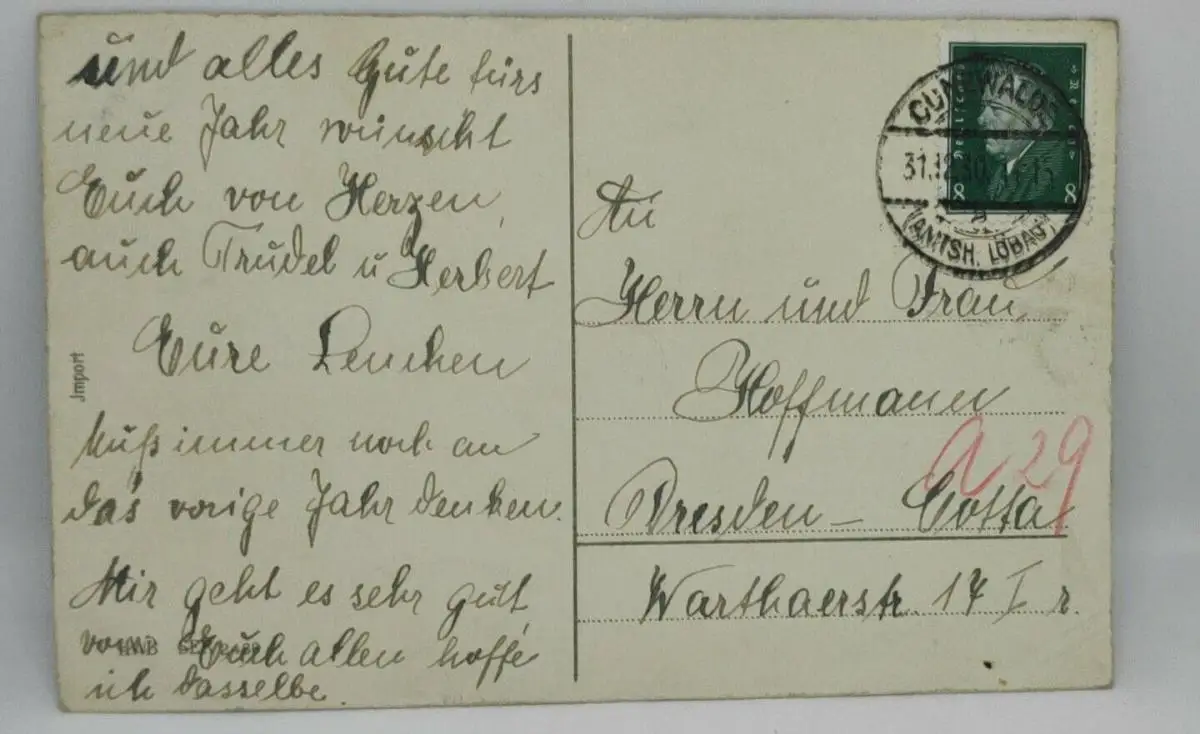 und alles Gute fürs
neue Jahr wünscht
Euch von Herzen,
auch Trudel u Herbert
Eure Lenchen
Muß immer noch an
das vorige Jahr denken.
Mir geht es sehr gut,
von Euch allen hoffe
ich dasselbe.
Import
An
Herrn und Frau
Hoffmann
Dresden – Cotta
Warthaerstr. 17 I r.
a 29
CUNEWALDE
31.12.30
(AMTSH. LÖBAU)
Deutsches Reich
8 8